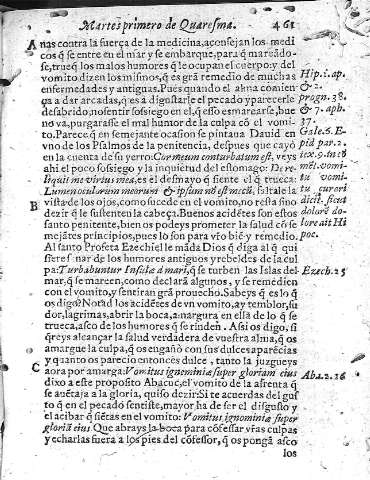 Martes primero de Quaresma. 461
A nas contra la fuerça de la medicina, aconsejan los medi
cos q̃ se entre en el mar y se embarque, para q̃ mareādo-
se, trueq̃ los malos humores q̃ le ocupan el cuerpo: y del
vomito dizen los mismos, q̃ es grā remedio de muchas
enfermedades y antiguas. Pues quando el alma comien-
ça a dar arcadas, q̃ es a disgustarle el pecado y parecerle
desabrido, no sentir sossiego en el, q̃ esso es marearse, bue
no va, purgarase el mal humor de la culpa cō el vomi-
to. Parece q̃ en semejante ocasion se pintaua Dauid en
vno de los Psalmos de la penitencia, despues que cayò
en la cuenta de su yerro: Cor meum conturbatum est, veys
ahi el poco sossiego y la inquietud del estomago: Dere-
liquit me virtus mea, es el desmayo q̃ siente el q̃ trueca:
Lumen oculorum meorum & ipsum nō est mecū, faltale la
B vista de los ojos, como sucede en el vomito, no resta sino
dezir q̃ le sustenten la cabeça. Buenos acidētes son estos
santo penitente, bien os podeys prometer la salud cō se
mejātes principios, pues lo son para vřo biē y remedio.
Al santo Profeta Ezechiel le māda Dios q̃ diga al q̃ qui
siere sanar de los humores antiguos y rebeldes de la cul
pa: Turbabuntur Insulæ ī mari, q̃ se turben las Islas del
mar, q̃ se mareen, como declarā algunos, y se remedien
con el vomito, y sentiran grā prouecho. Sabeys q̃ es lo q̃
os digo? Notad los acidētes de vn vomito, ay temblor, su
dor, lagrimas, abrir la boca, amargura en ella de lo q̃ se
trueca, asco de los humores q̃ se rindē. Assi os digo, si
q̃reys alcançar la salud verdadera de vuestra alma, q̃ os
amargue la culpa, q̃ os engañò con sus dulces aparēcias
y quanto os parecio entonces dulce, tanto la juzgueys
C aora por amarga: Vomitus ignominiæ super gloriam eius
dixo a este proposito Abacuc, el vomito de la afrenta q̃
se auētaja a la gloria, quiso dezir: Si te acuerdas del gus
to q̃ en el pecado sentiste, mayor ha de ser el disgusto y
el acibar q̃ siētas en el vomito: Vomitus ignominiæ super
gloriā eius Que abrays la boca para cōfessar vřas culpas
y echarlas fuera a los pies del cōfessor, q̃ os pongā asco
los
Hip. i. ap.
& 2.
progn. 38.
& 7. aph.
37.
Gale. 6. E-
pid par. 2.
Ezech. 25
Aba. 2. 16